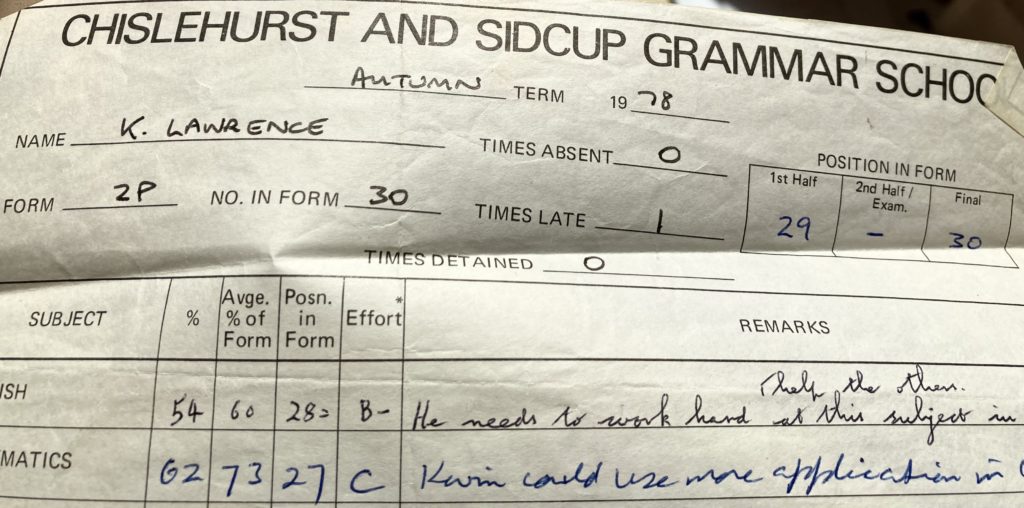 CHISLEHURST AND SIDCUP GRAMMAR SCHOO
AUTUMN TERM 1978
NAME K. LAWRENCE TIMES ABSENT 0
POSITION IN FORM
1st Half 2nd Half / Exam. Final
FORM 2P NO. IN FORM 30 TIMES LATE 1
29 - 30
TIMES DETAINED 0
SUBJECT % Avge. % of Form Posn. in Form Effort* REMARKS
help the others.
ISH 54 60 28= B- He needs to work hard at this subject in
MATICS 62 73 27 C Kevin could use more application in